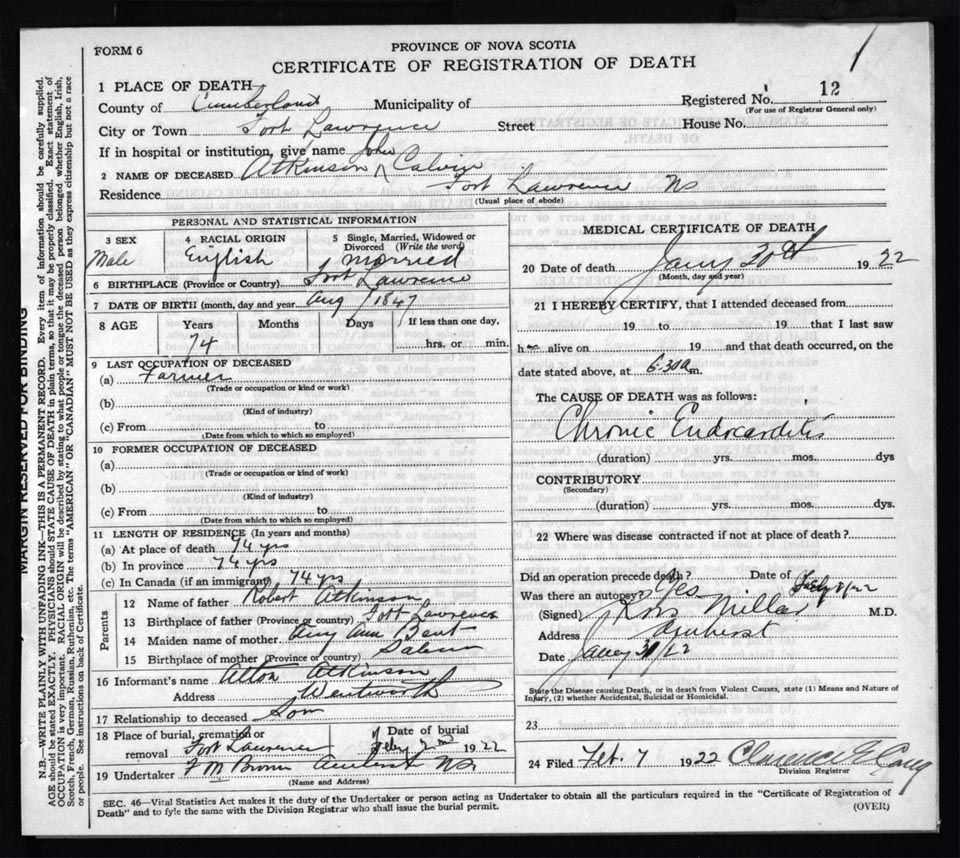 FORM 6
PROVINCE OF NOVA SCOTIA
CERTIFICATE OF REGISTRATION OF DEATH
1 PLACE OF DEATH
County of Cumberland Municipality of
Registered No. 12
(For use of Registrar General only)
City or Town Fort Lawrence Street House No.
If in hospital or institution, give name
John
2 NAME OF DECEASED Atkinson Calvin
Residence Fort Lawrence NS
(Usual place of abode)
PERSONAL AND STATISTICAL INFORMATION
3 SEX
Male
4 RACIAL ORIGIN
English
5 Single, Married, Widowed or
Divorced (Write the word)
Married
6 BIRTHPLACE (Province or Country) Fort Lawrence
7 DATE OF BIRTH (month, day and year) Aug 1847
8 AGE Years Months Days If less than one day,
74 hrs. or min.
9 LAST OCCUPATION OF DECEASED
(a) Farmer
(Trade or occupation or kind or work)
(b)
(Kind of industry)
(c) From to
(Date from which to which so employed)
10 FORMER OCCUPATION OF DECEASED
(a)
(Trade or occupation or kind of work)
(b)
(Kind of industry)
(c) From to
(Date from which to which so employed)
11 LENGTH OF RESIDENCE (In years and months)
(a) At place of death 74 yrs
(b) In province 74 yrs
(c) In Canada (if an immigrant) 74 yrs
Parents
12 Name of father Robert Atkinson
13 Birthplace of father (Province or country) Fort Lawrence
14 Maiden name of mother Amy Ann Bent
15 Birthplace of mother (Province or country)
16 Informant's name Alton Atkinson
Address Wentworth
17 Relationship to deceased Son
18 Place of burial, cremation or
removal Fort Lawrence
Date of burial
Feby 2nd 1922
19 Undertaker F M Brown Amherst NS.
(Name and Address)
MEDICAL CERTIFICATE OF DEATH
20 Date of death Jany 30th 1922
(Month, day and year)
21 I HEREBY CERTIFY, that I attended deceased from
19 to 19 that I last saw
h alive on 19 and that death occurred, on the
date stated above, at 6.30 a m.
The CAUSE OF DEATH was as follows:
Chronic Endocarditis
(duration) yrs. mos. dys
CONTRIBUTORY
(Secondary)
(duration) yrs. mos. dys.
22 Where was disease contracted if not at place of death?
Did an operation precede death? Date of
Was there an autopsy? Yes
(Signed) Ross Millar M.D.
Address Amherst
Date 31/22
State the Disease causing Death, or in death from Violent Causes, state (1) Means and Nature of
Injury, (2) whether Accidental, Suicidal or Homicidal.
23
24 Filed Feb. 7 1922 Clarence E
Division Registrar
SEC. 46—Vital Statistics Act makes it the duty of the Undertaker or person acting as Undertaker to obtain all the particulars required in the "Certificate of Registration of
Death" and to fyle the same with the Division Registrar who shall issue the burial permit.
(OVER)
MARGIN RESERVED FOR BINDING
N.B.—WRITE PLAINLY WITH UNFADING INK—THIS IS A PERMANENT RECORD. Every item of information should be carefully supplied.
AGE should be stated EXACTLY. PHYSICIANS should STATE CAUSE OF DEATH in plain terms, so that it may be properly classified. Exact statement of
OCCUPATION is very important. RACIAL ORIGIN will be described by stating to what people or tongue the deceased person belonged whether English, Irish,
Scotch, French, German, Russian, Ruthenian, etc. The terms "AMERICAN" OR "CANADIAN" MUST NOT BE USED as they express citizenship but not a race
or people. See instructions on back of Certificate.